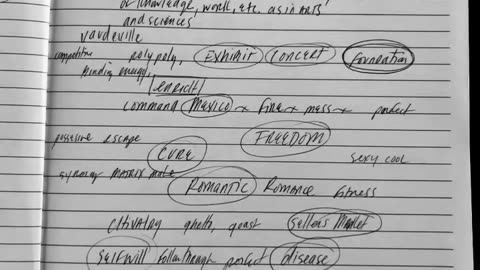 of knowledge, work, etc. as in arts
and sciences
vaudeville
competitive polypoly, Exhibit Concert Foundation
binding energy,
enrich
command Mexico x Fire x mess x perfect
possessive escape FREEDOM
CURE sexy cool
synergy MATRIX mate
Romantic Romance fitness
Chivalry ghetto, quest Sellers Market
Selfwill followthrough perfect disease